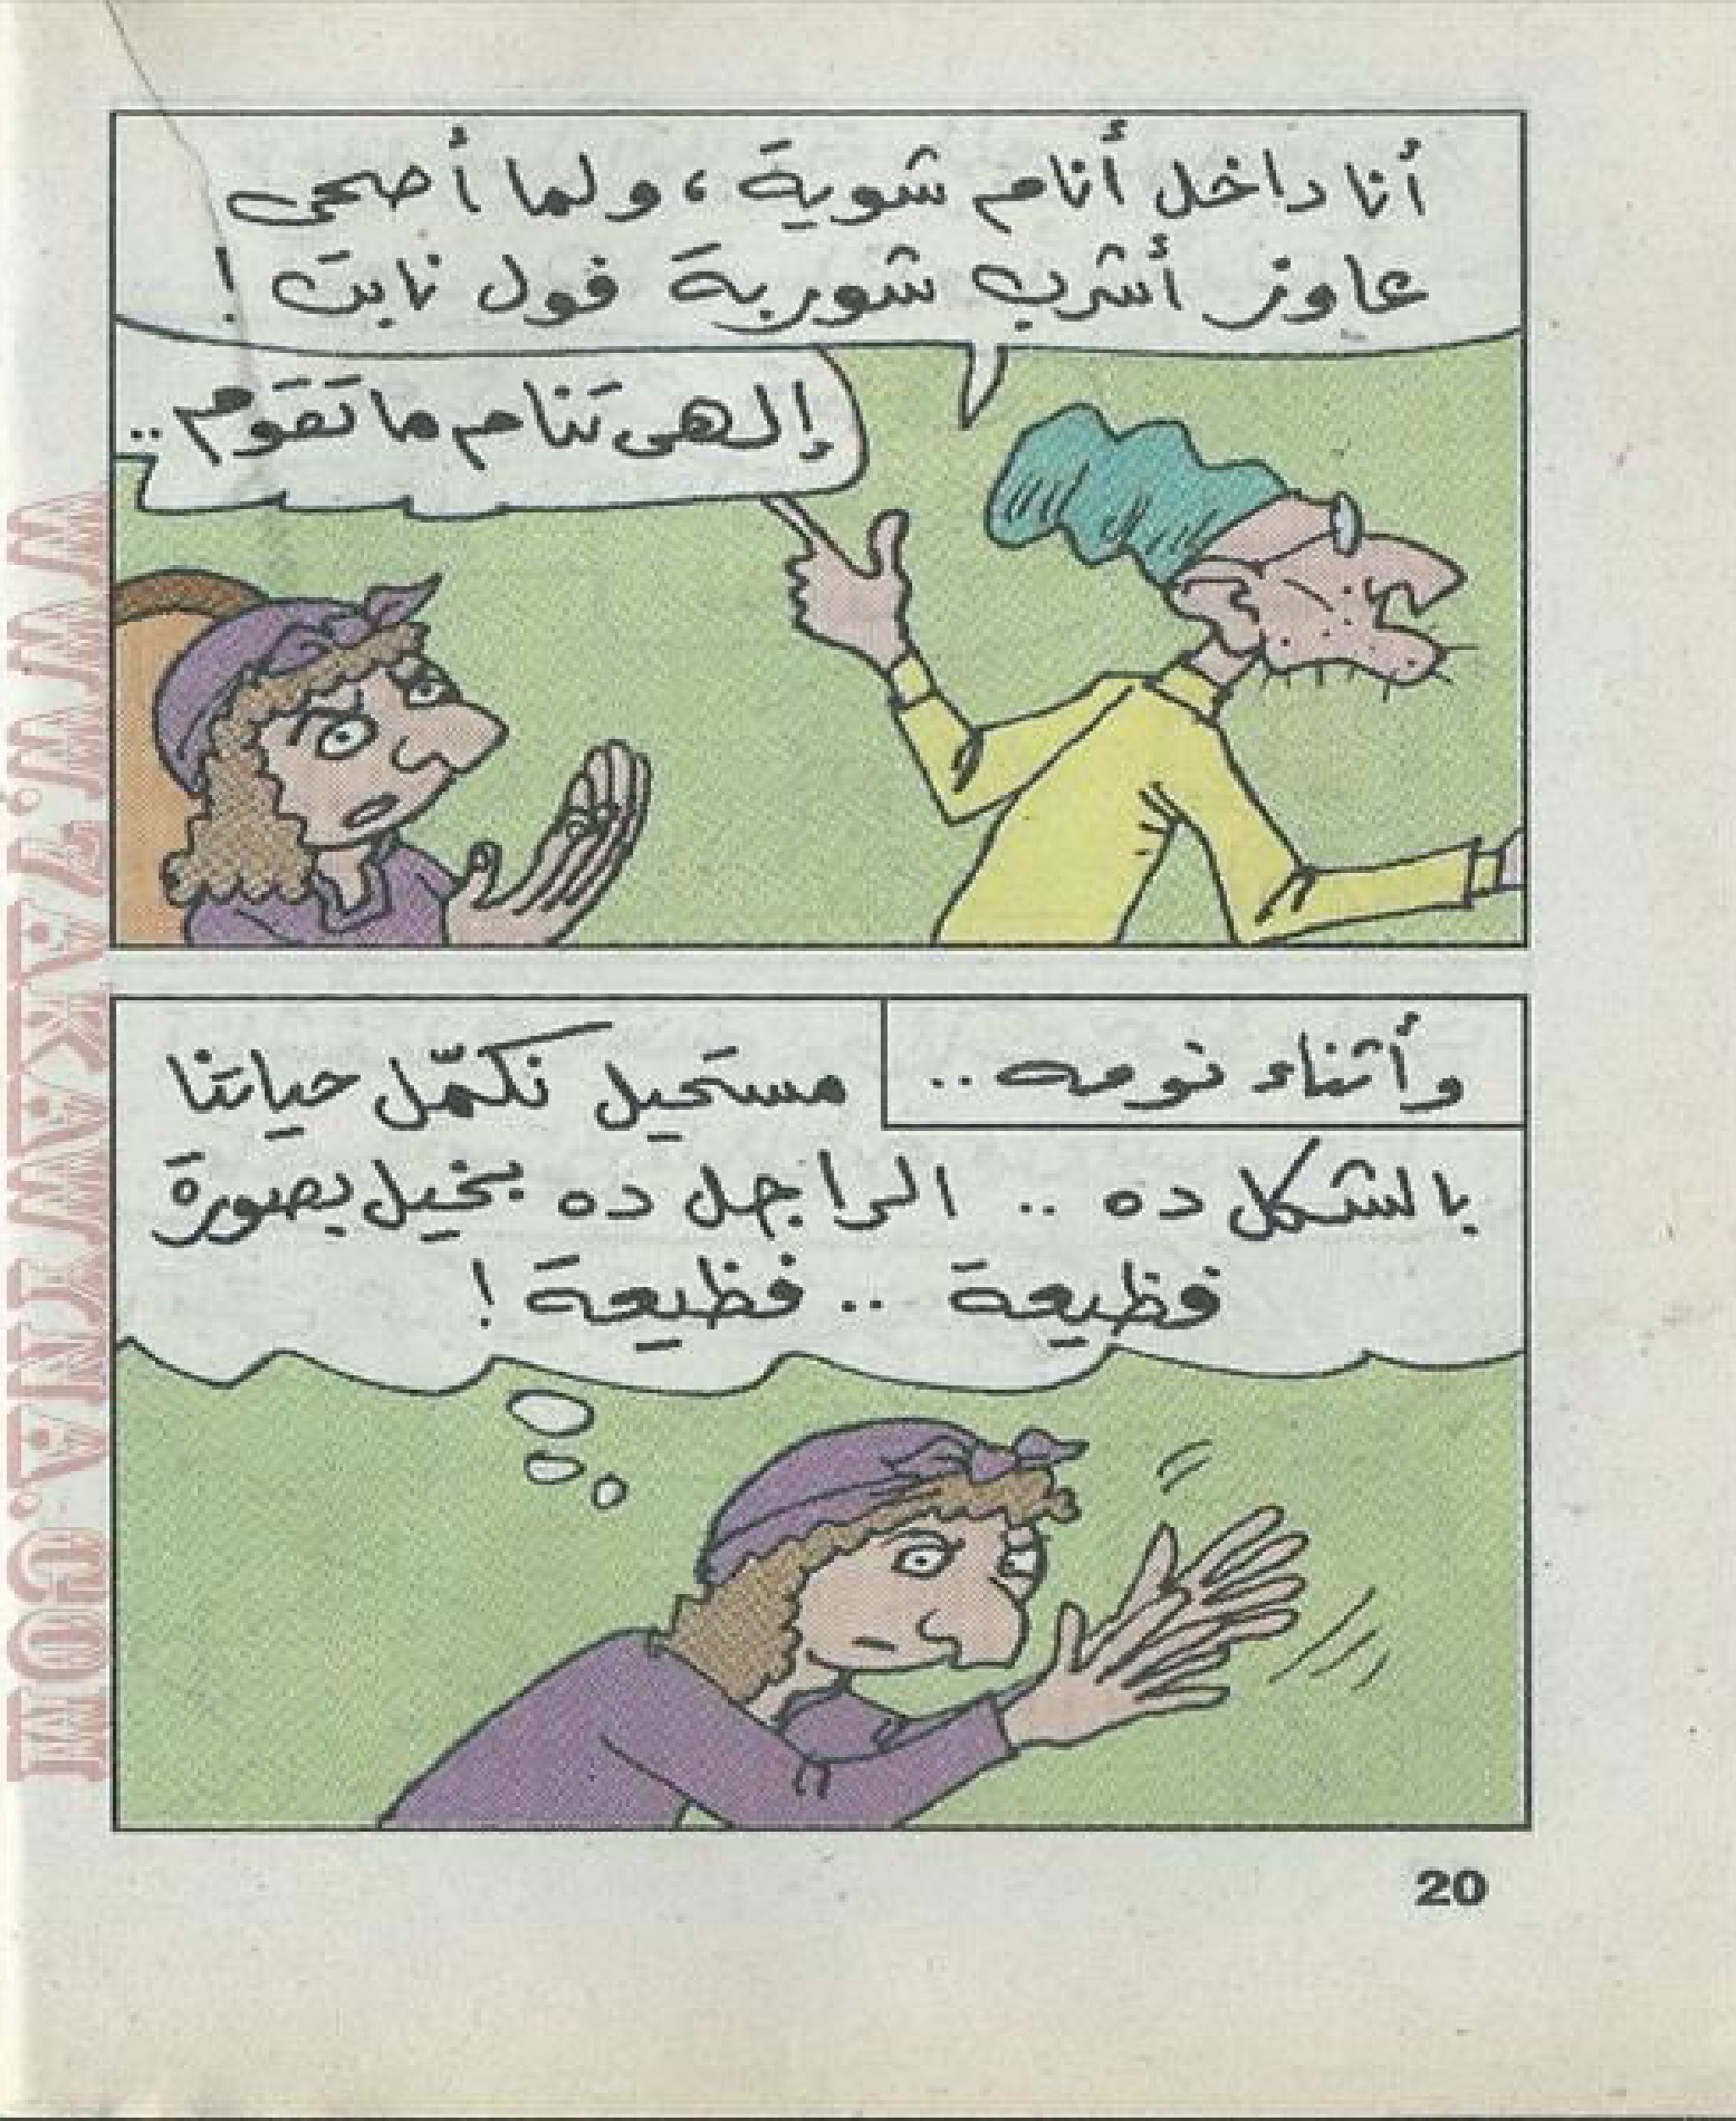 أنا داخل أنام شوية ، ولما أصحى
عاوز أشرب شوربة فول نابت !
إلهى تنام ما تقوم ..
وأثناء نومه ..
مستحيل نكمّل حياتنا
بالشكل ده .. الراجل ده بخيل بصورة
فظيعة .. فظيعة !
20
WWW.7AKAWITNA.COM